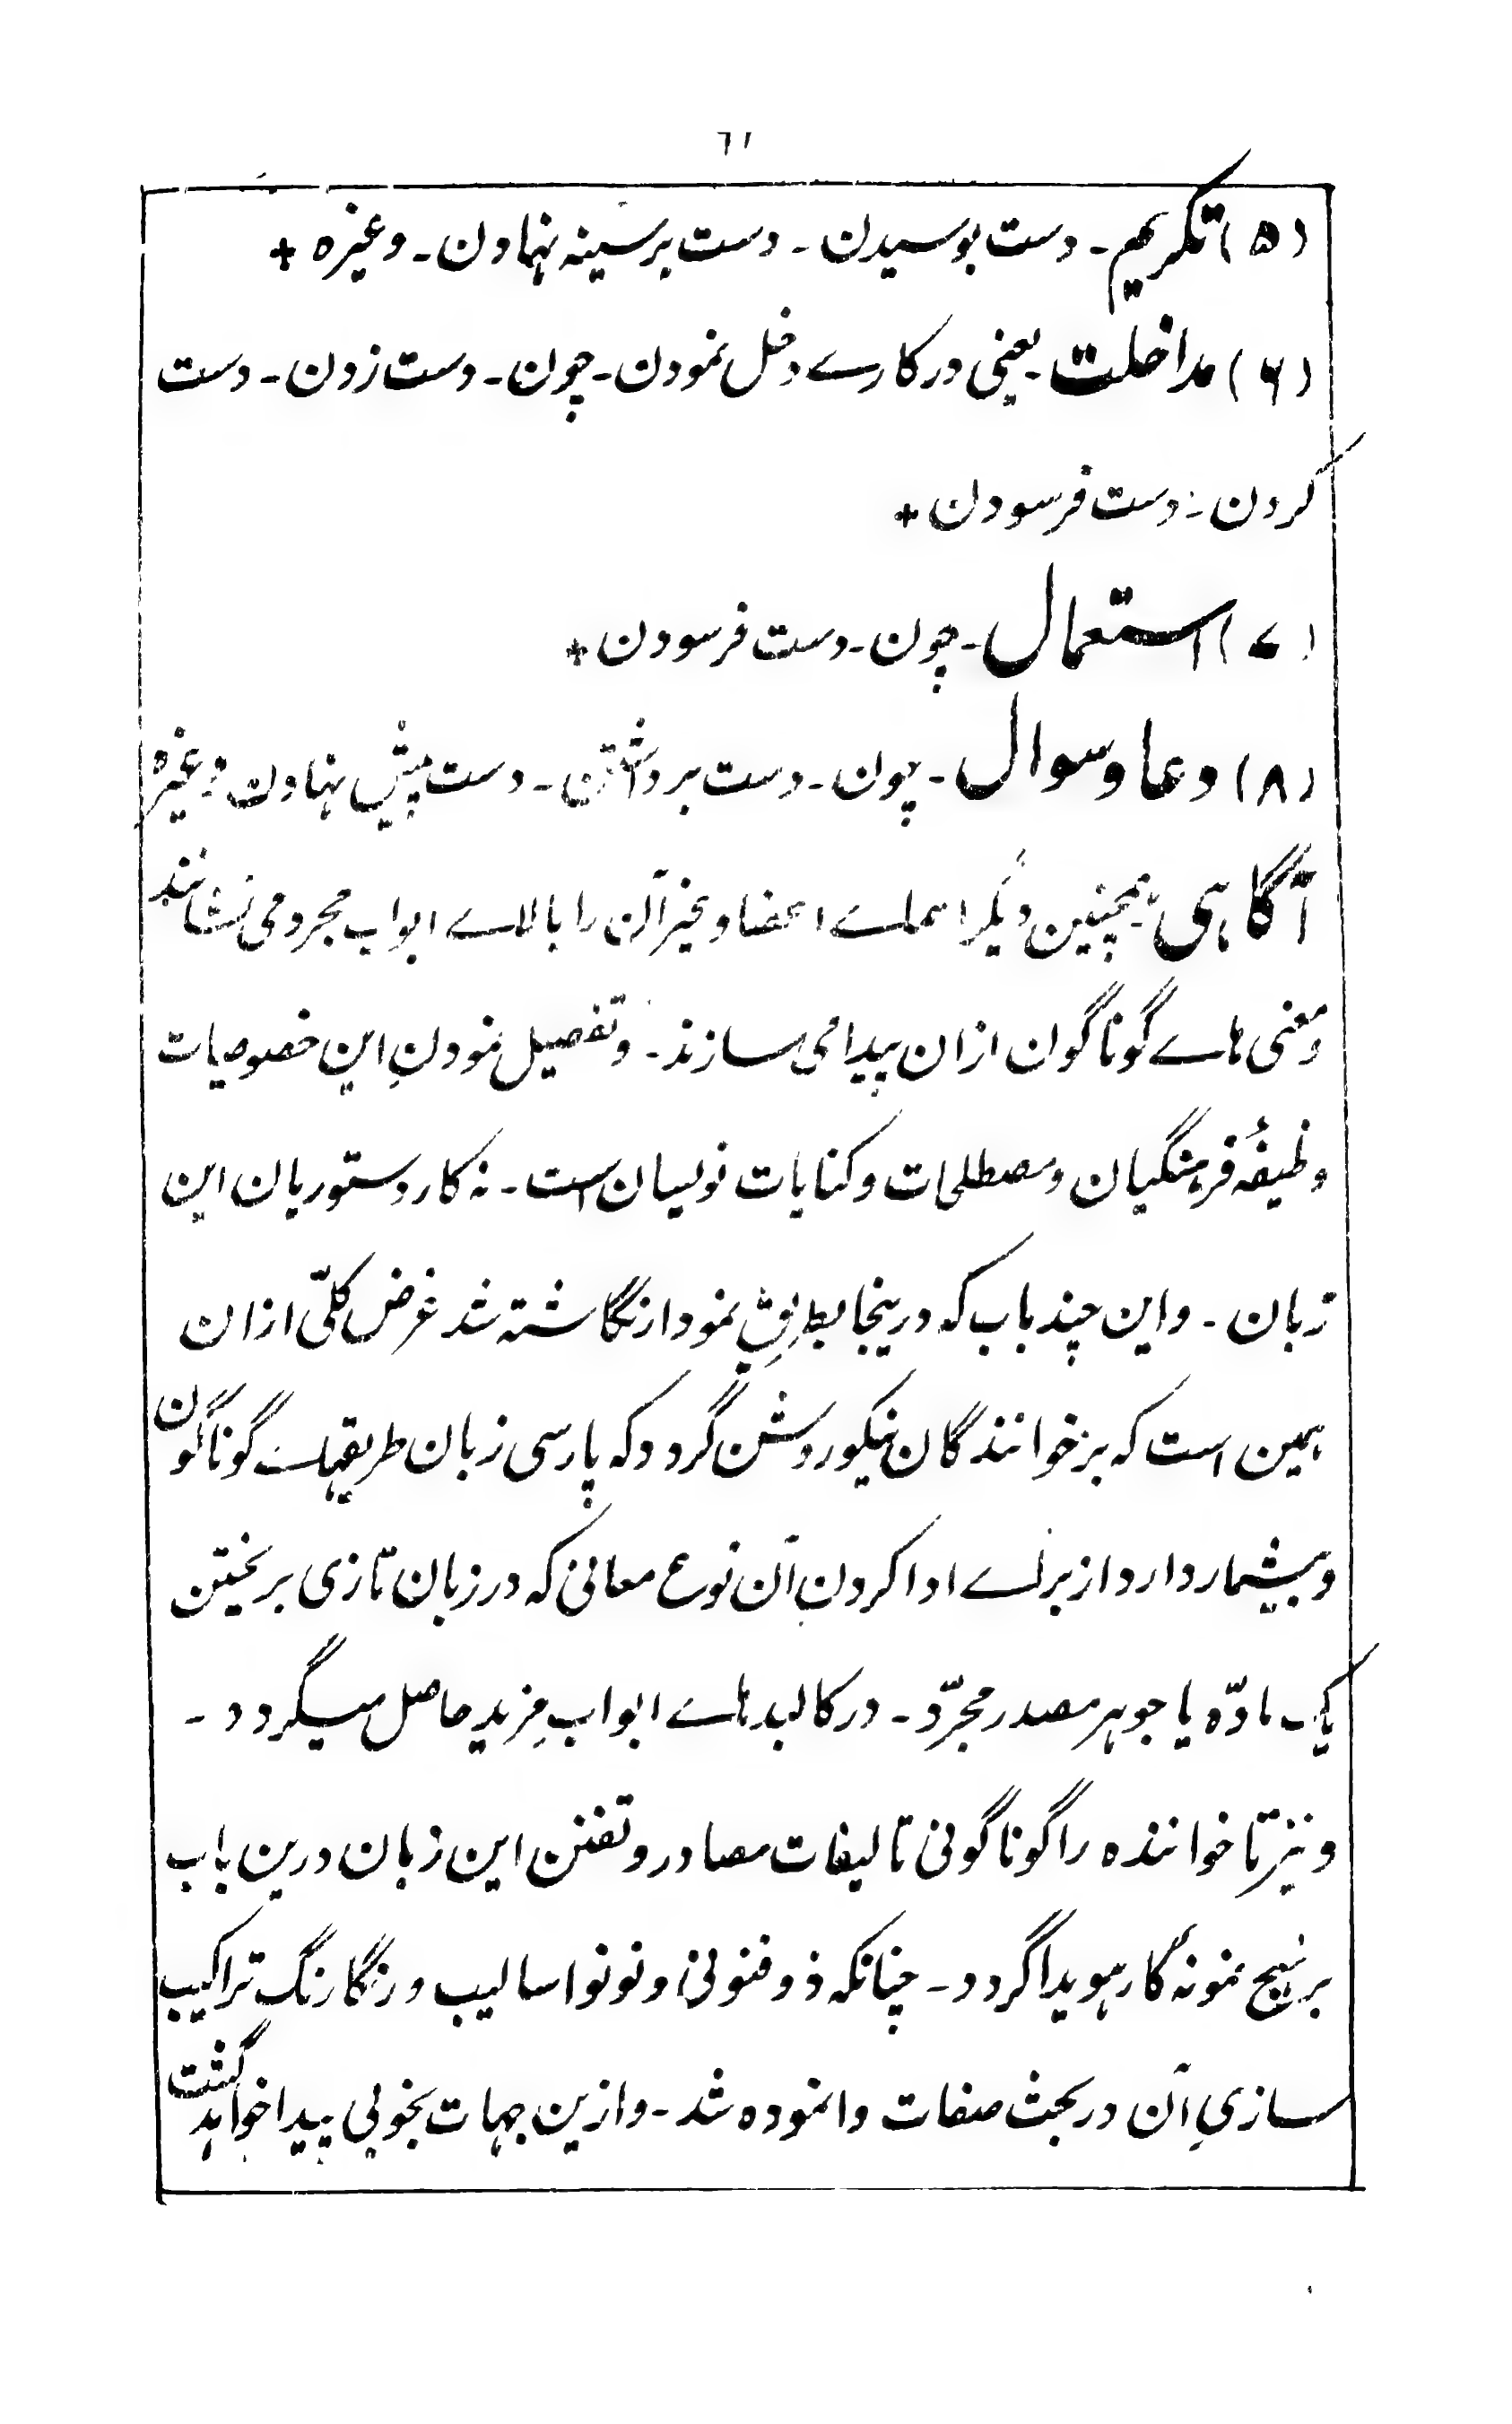 ٦١
(۵) تکریم - دست بوسیدن - دست بر سینه نهادن - وغیره +
(۶) مداخلت - یعنی در کارے دخل نمودن - چون - دست زدن - دست
کردن - دست فرسودن +
(۷) استعمال - چون - دست فرسودن +
(۸) دعا و سوال - چون - دست برداشتن - دست پیش نهادن - وغیره
آگاهی - همچنین دیگر اسماے اعضا و غیر آن را بالاے ابواب مجرد می نشانند
و معنی هاے گوناگون ازان پیدا می سازند - و تفصیل نمودنِ این خصوصیات
وظیفهٔ فرهنگیان و مصطلحات و کنایات نویسان است - نه کار دستوریان این
زبان - و این چند باب که درینجا بطریقِ نمودار نگاشته شد غرض کلّی ازان
همین است که بر خوانندگان نیکو روشن گردد که پارسی زبان طریقهاے گوناگون
و بیشمار دارد از براے ادا کردنِ آن نوع معانی که در زبان تازی بریختن
یک مادّه یا جوهر مصدر مجرّد - در کالبدهاے ابوابِ مزید حاصل میگردد -
و نیز تا خواننده را گوناگونی تالیفات مصادر و تفنن این زبان درین باب
بر نهجِ نمونه کار هویدا گردد - چنانکه ذو فنونی و نو نو اسالیب و رنگارنگ تراکیب
سازیِ آن در بحث صفات وانموده شد - و ازین جهات بخوبی پیدا خواهد گشت